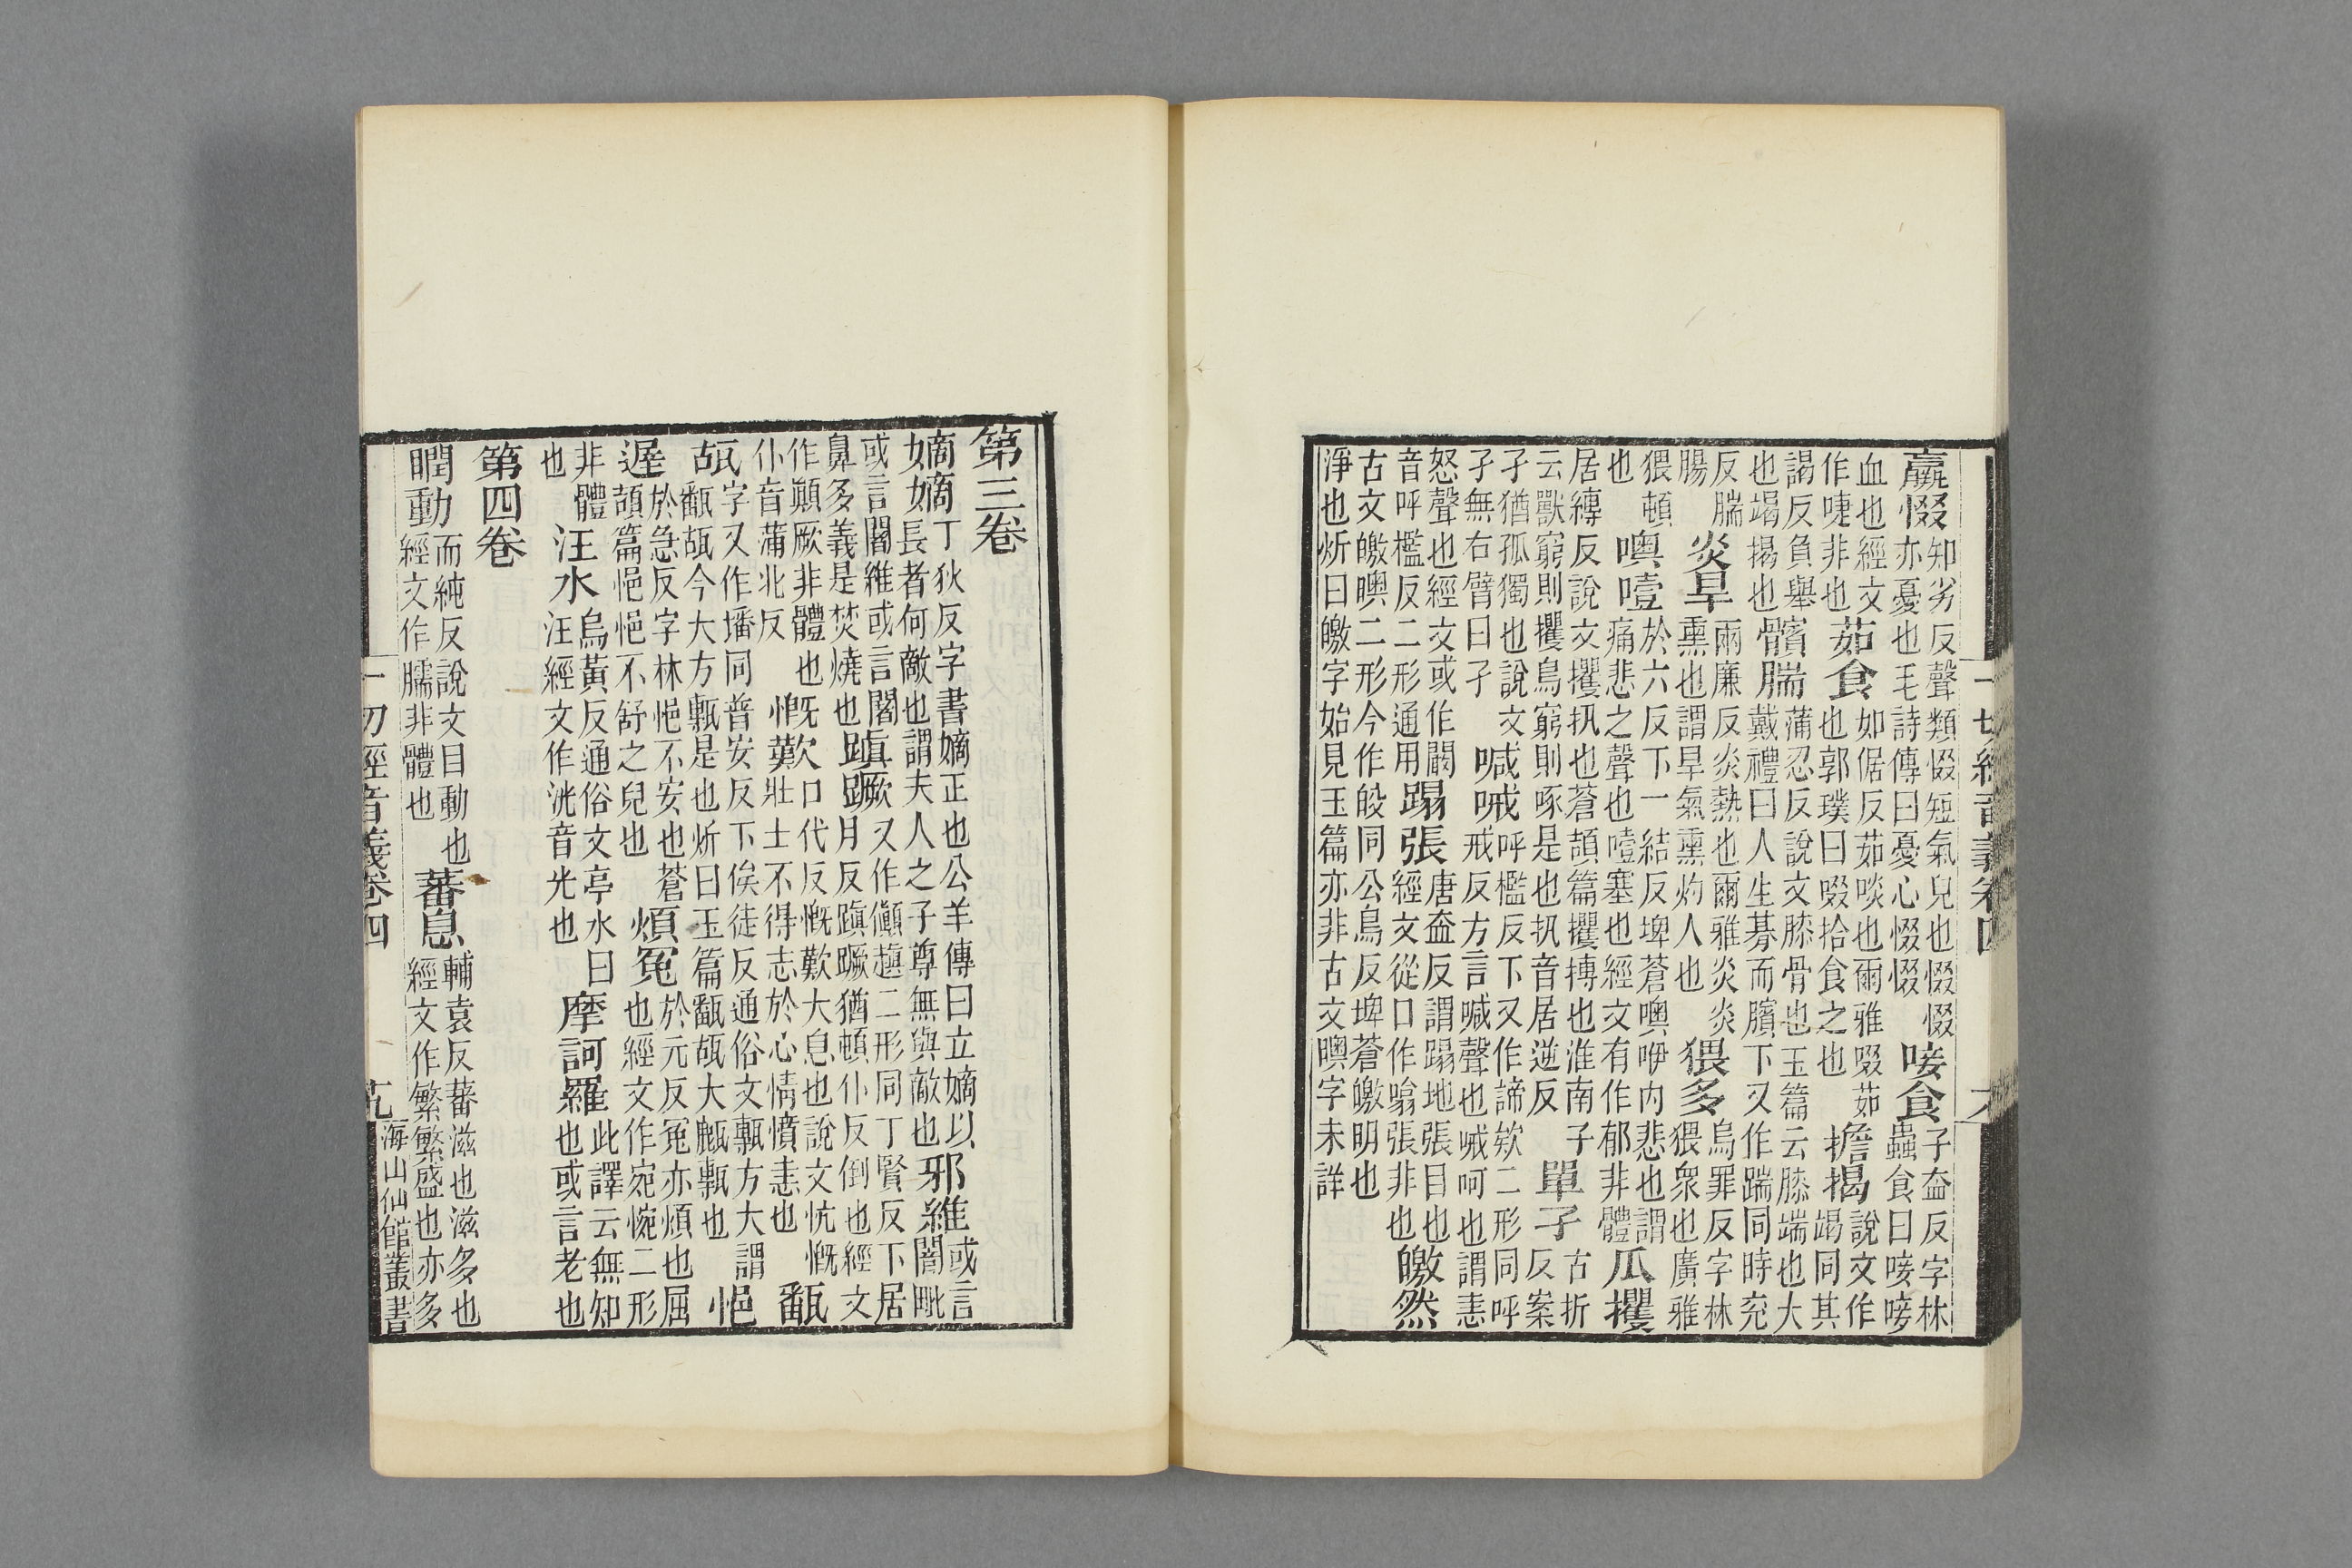 羸惙知劣反聲類惙短氣皃也惙惙
亦憂也毛詩傳曰憂心惙惙唼食子盍反字林
蟲食曰唼唼
血也經文
作啑非也茹食如倨反茹啖也爾雅啜茹
也郭璞曰啜拾食之也擔揭說文作
竭同其
謁反負舉
也竭揭也髕腨蒲忍反說文膝骨也玉篇云膝端也大
戴禮曰人生朞而臏下又作踹同時兖
反腨
腸炎旱雨廉反炎熱也爾雅炎炎
熏也謂旱氣熏灼人也猥多烏罪反字林
猥衆也廣雅
猥頓
也噢噎於六反下一結反埤蒼噢咿內悲也謂
痛悲之聲也噎塞也經文有作郁非體瓜攫
居縛反說文攫扟也蒼頡篇攫搏也淮南子
云獸窮則攫鳥窮則啄是也扟音居逆反單孑古折
反案
孑猶孤獨也說文
孑無右臂曰孑喊喊呼檻反下又作諦欸二形同呼
戒反方言喊聲也喊呵也謂恚
怒聲也經文或作闞
音呼檻反二形通用蹋張唐盍反謂蹋地張目也
經文從口作嗋張非也皦然
古文皦㬶二形今作皎同公鳥反埤蒼皦明也
淨也炘曰皦字始見玉篇亦非古文㬶字未詳
一切經音義卷四
第三卷
嫡嫡丁狄反字書嫡正也公羊傳曰立嫡以
長者何敵也謂夫人之子尊無與敵也邪維或言
闍毗
或言闍維或言闍
鼻多義是焚燒也蹎蹶又作傎趚二形同丁賢反下居
月反蹎蹶猶頓仆反倒也經文
作顛厥非體也
仆音蒲北反慨歎口代反慨歎大息也說文忼慨
壯士不得志於心情憤恚也㽃
瓳字又作墦同普安反下俟徒反通俗文甎方大謂
㽃瓳今大方甎是也炘曰玉篇㽃瓳大甂甎也悒
遲於急反字林悒不安也蒼
頡篇悒悒不舒之皃也煩冤於元反冤亦煩也屈
也經文作宛惋二形
非體
也汪水烏黃反通俗文亭水曰
汪經文作洸音光也摩訶羅此譯云無知
也或言老也
第四卷
瞤動而純反說文目動也
經文作臑非體也蕃息輔袁反蕃滋也滋多也
經文作繁繁盛也亦多
一切經音義卷四
海山仙館叢書